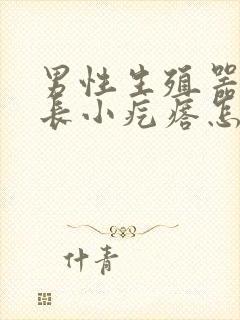 男性生殖器
长小疙瘩怎
什青